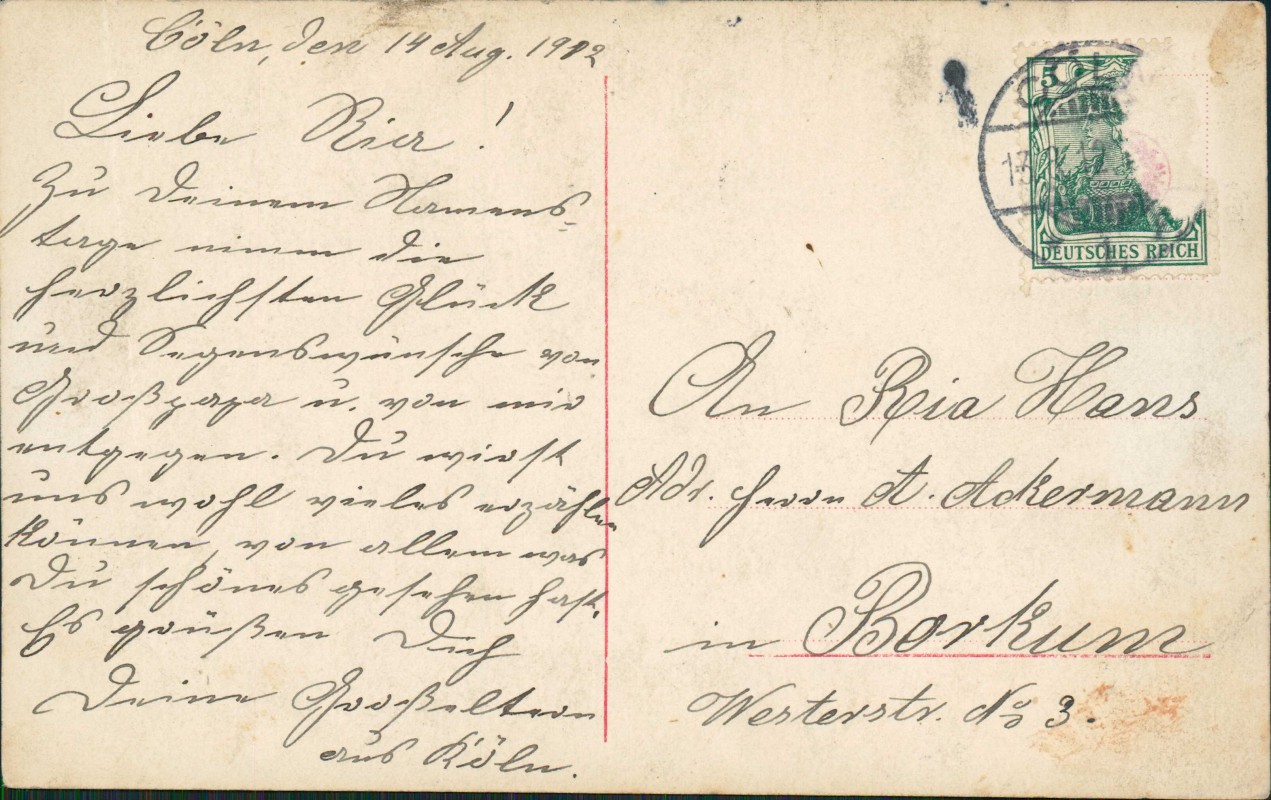 Cöln, den 14 Aug. 1912
Liebe Ria!
Zu Deinem Namens-
tage nimm die
herzlichsten Glück
und Segenswünsche von
Großpapa u. von mir
entgegen. Du wirst
uns wohl vieles erzählen
können, von allem was
Du schönes gesehen hast.
Es grüßen Dich
Deine Großeltern
aus Köln.
5
DEUTSCHES REICH
An Ria Hans
Adr. Herrn A. Ackermann
in Borkum
Westerstr. No 3.